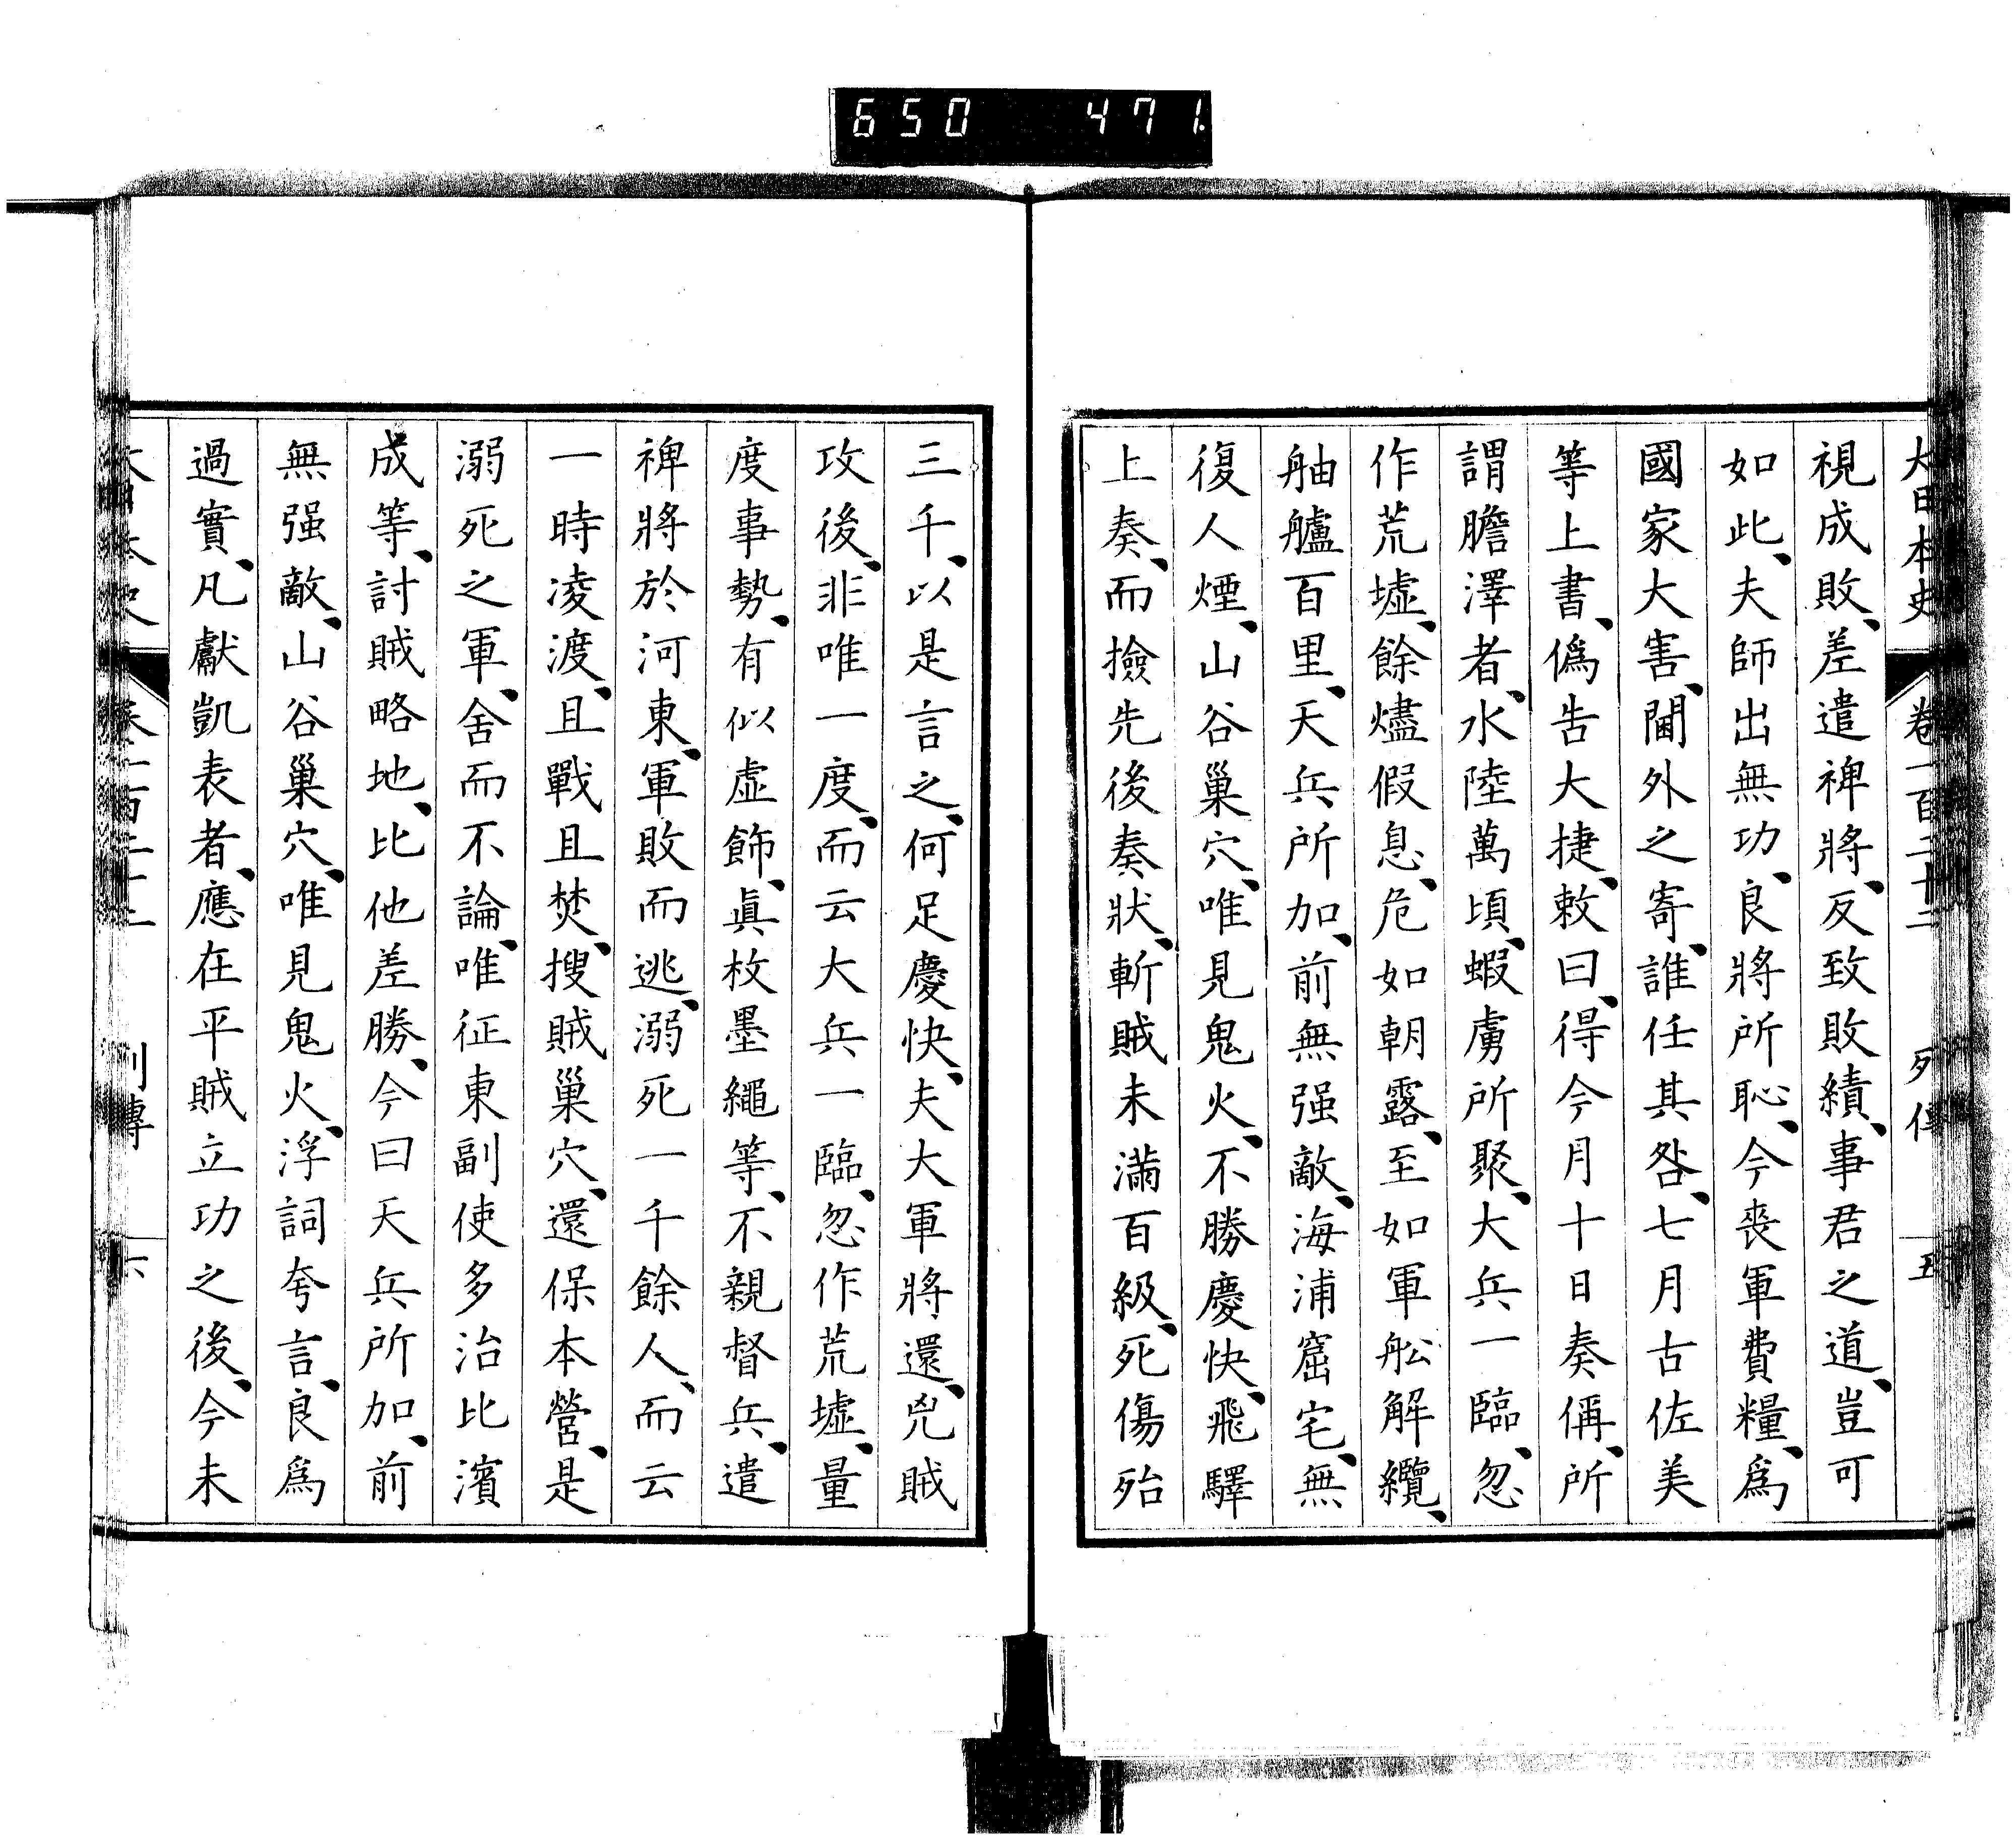 650 471
大日本史 卷一百二十二 列傳 五
視成敗、差遣裨將、反致敗績、事君之道、豈可
如此、夫師出無功、良將所恥、今喪軍費糧、爲
國家大害、閫外之寄、誰任其咎、七月古佐美
等上書、僞告大捷、敕曰、得今月十日奏偁、所
謂膽澤者、水陸萬頃、蝦虜所聚、大兵一臨、忽
作荒墟、餘燼假息、危如朝露、至如軍舩解纜、
舳艫百里、天兵所加、前無强敵、海浦窟宅、無
復人煙、山谷巢穴、唯見鬼火、不勝慶快、飛驛
上奏、而撿先後奏狀、斬賊未滿百級、死傷殆
三千、以是言之、何足慶快、夫大軍將還、兇賊
攻後、非唯一度、而云大兵一臨、忽作荒墟、量
度事勢、有似虛飾、眞枚墨繩等、不親督兵、遣
裨將於河東、軍敗而逃、溺死一千餘人、而云
一時凌渡、且戰且焚、搜賊巢穴、還保本營、是
溺死之軍、舍而不論、唯征東副使多治比濱
成等、討賊略地、比他差勝、今曰天兵所加、前
無强敵、山谷巢穴、唯見鬼火、浮詞夸言、良爲
過實、凡獻凱表者、應在平賊立功之後、今未
列傳 六